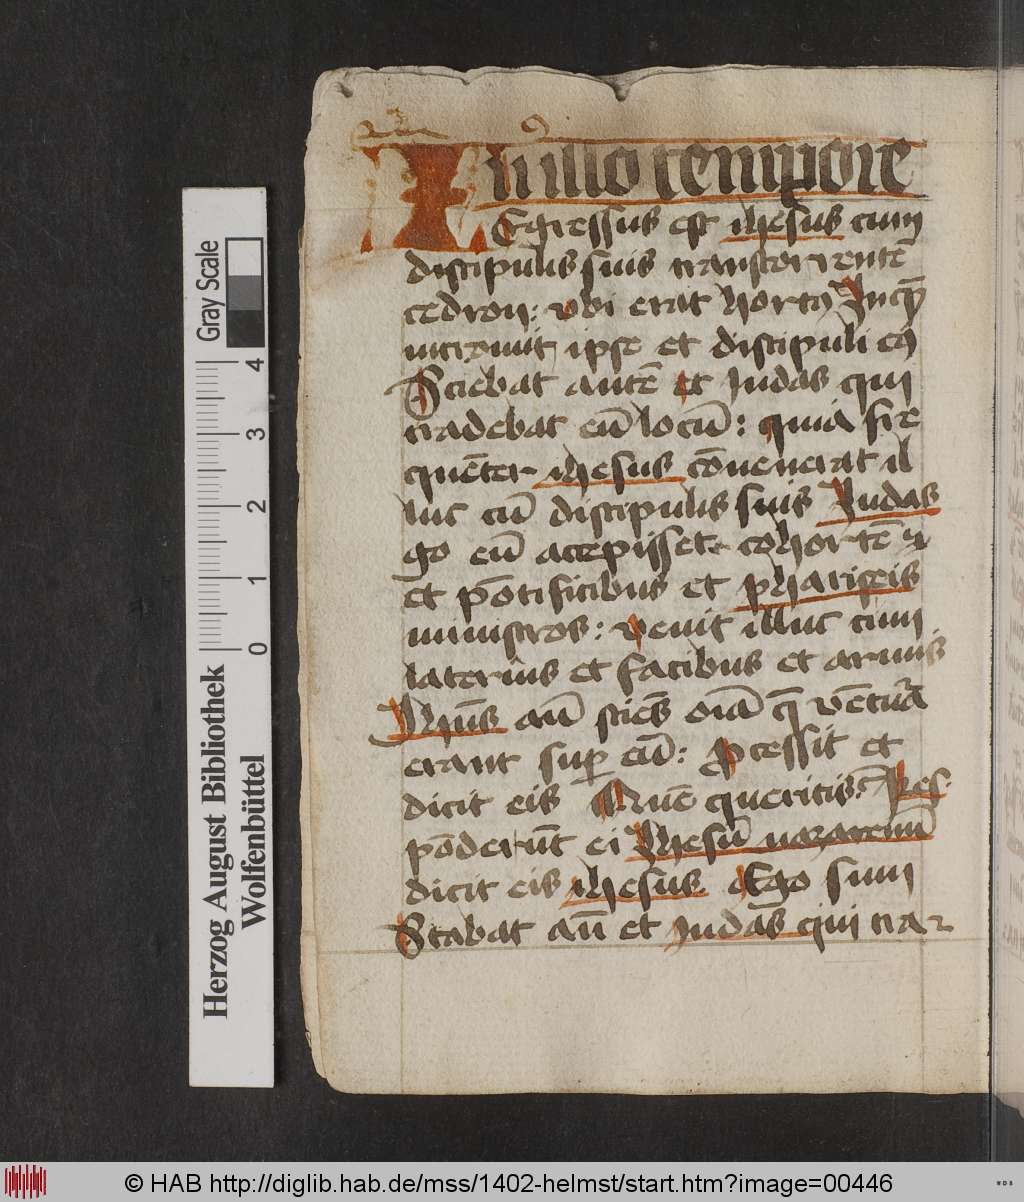 In illo tempore
Egressus est ihesus cum
discipulis suis transtorrentē
cedron: vbi erat hortꝰ Inqͣ
introiuit ipse et discipuli eiꝰ
Sciebat autē et Iudas qui
tradebat eū locū: quia fre
quēter ihesus cōuenerat il
luc cū discipulis suis Iudas
go cū accepisset cohortē
et pōtificibus et phariseis
ministros: venit illuc cum
laternis et facibus et armis
Ihūs aū sciēs oīa q̄ vētura
erant suꝑ eū: ꝓcessit et
dicit eis Quē queritis: Res
pōderūt ei Ihesū nazarenū
dicit eis ihesus Ego sum
Stabat aū et Iudas qui tra
Gray Scale
4
3
2
1
0
Herzog August Bibliothek
Wolfenbüttel
© HAB http://diglib.hab.de/mss/1402-helmst/start.htm?image=00446